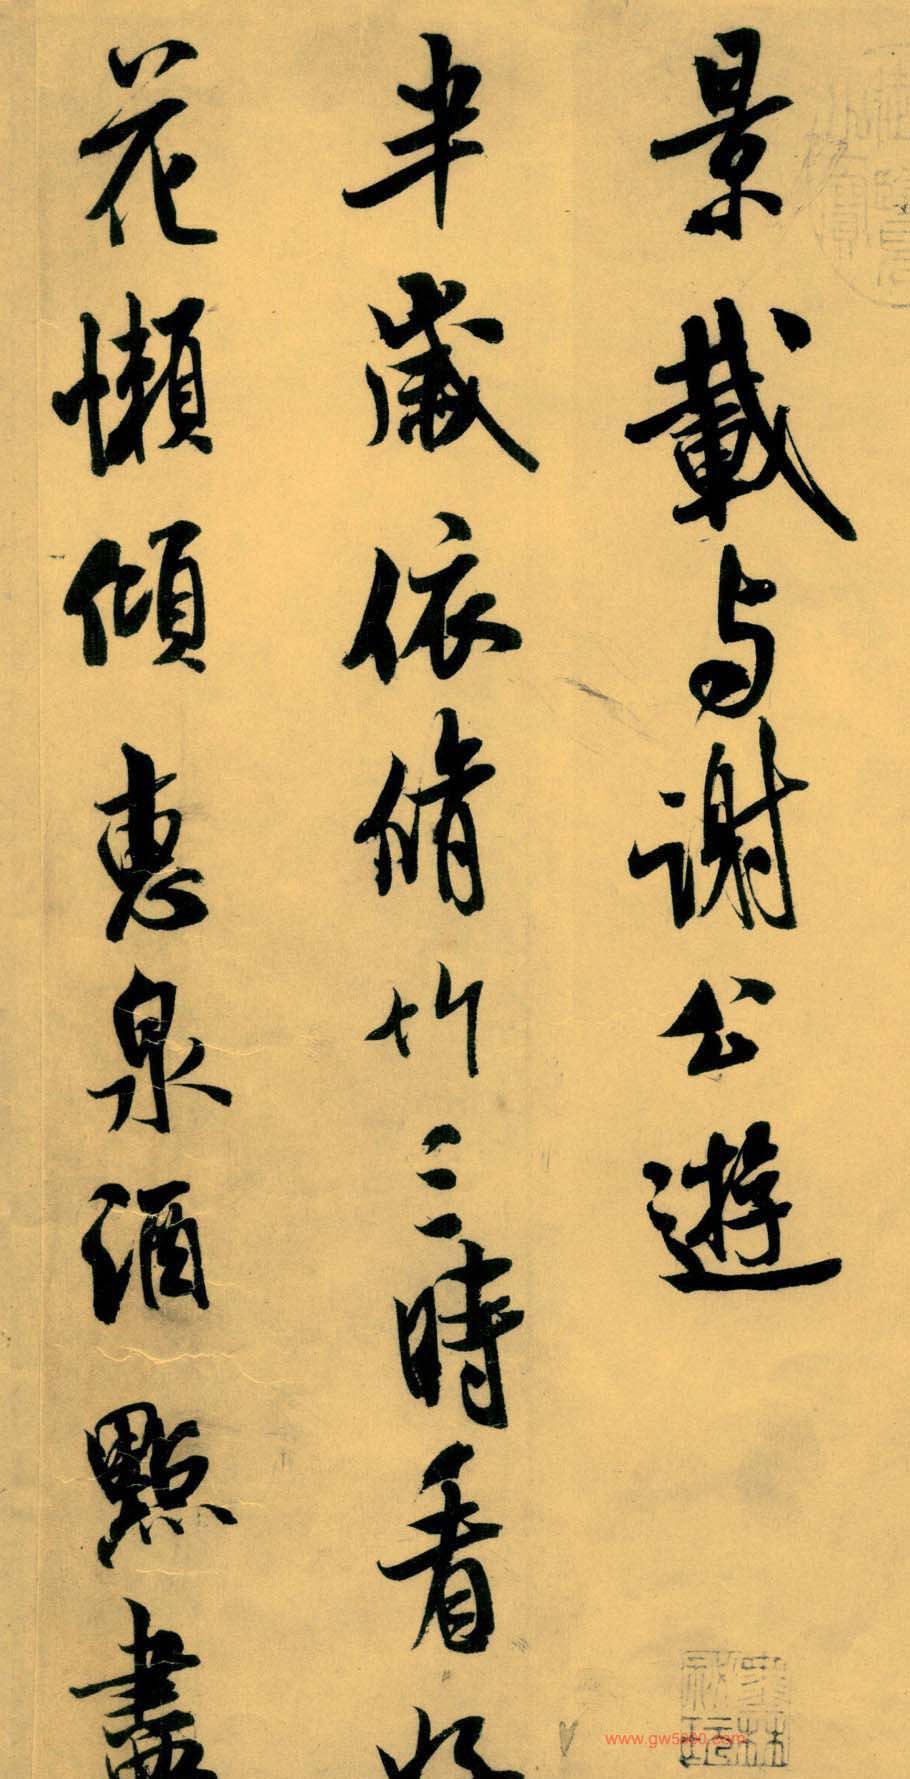 景載与谢公遊
半歲依脩竹三時看好
花懶傾惠泉酒點盡
www.gw5000.com